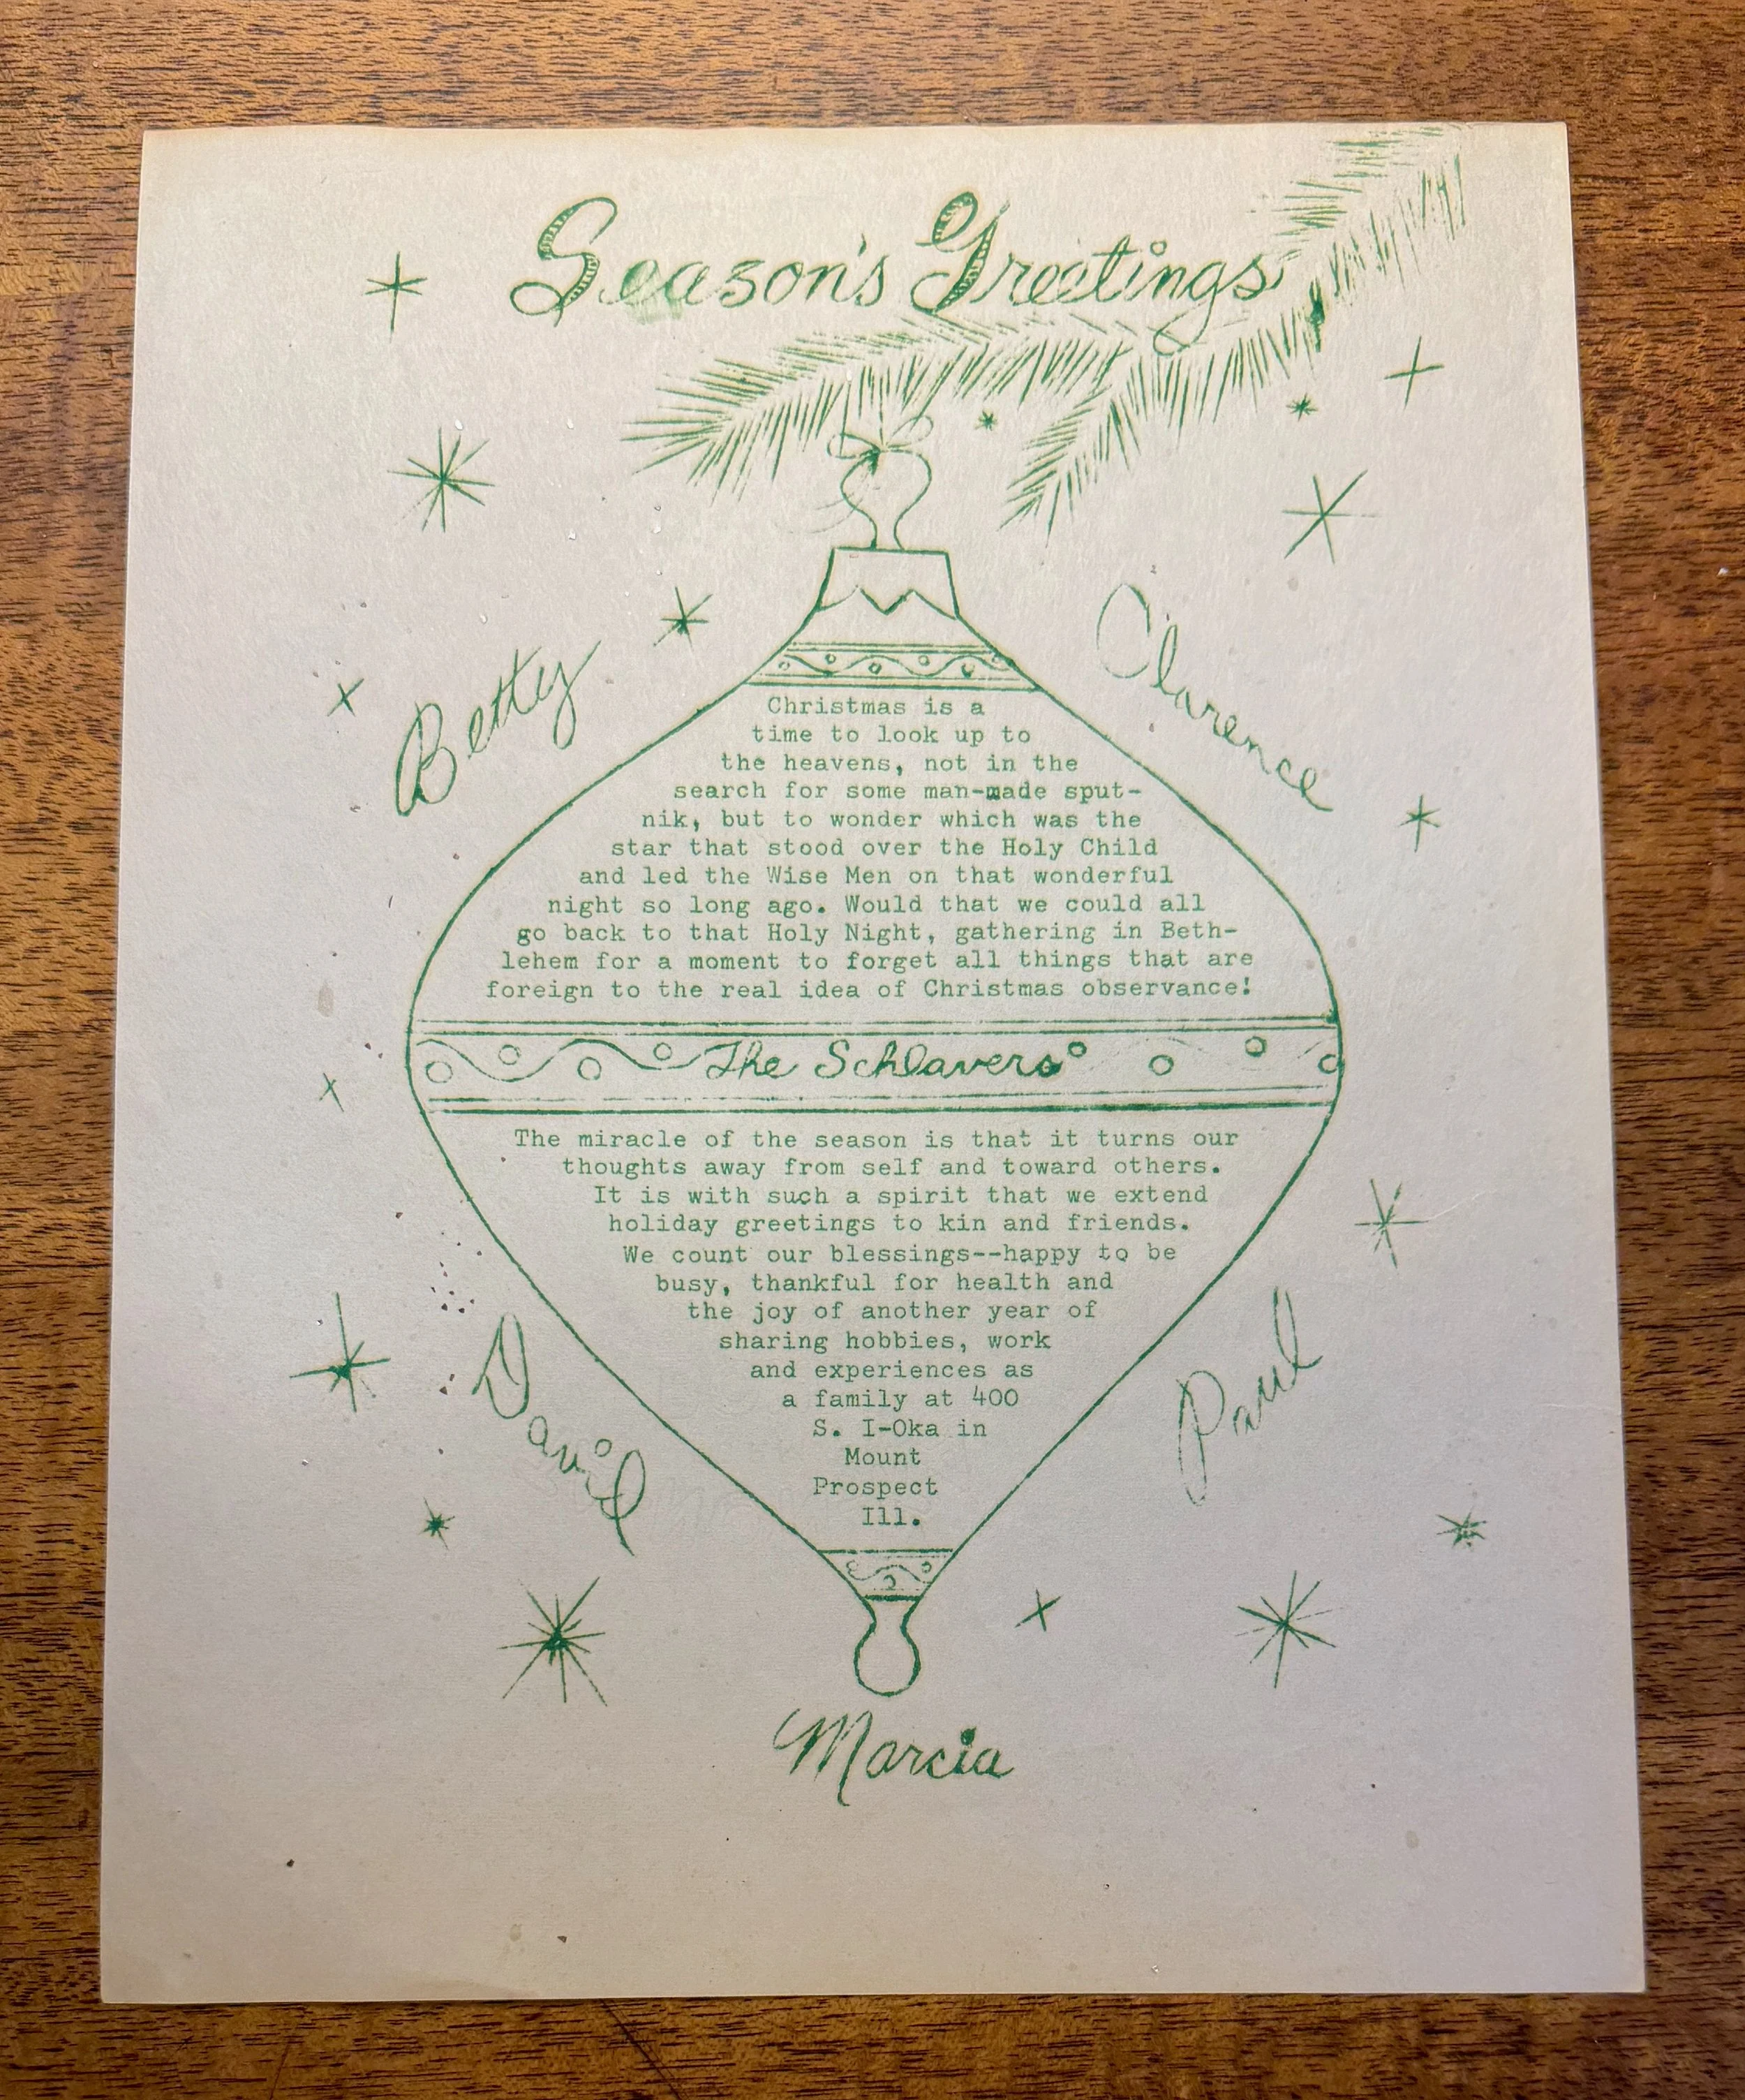 Season's Greetings
Betty
Clarence
Christmas is a
time to look up to
the heavens, not in the
search for some man-made sput-
nik, but to wonder which was the
star that stood over the Holy Child
and led the Wise Men on that wonderful
night so long ago. Would that we could all
go back to that Holy Night, gathering in Beth-
lehem for a moment to forget all things that are
foreign to the real idea of Christmas observance!
The Schlavers
The miracle of the season is that it turns our
thoughts away from self and toward others.
It is with such a spirit that we extend
holiday greetings to kin and friends.
We count our blessings--happy to be
busy, thankful for health and
the joy of another year of
sharing hobbies, work
and experiences as
a family at 400
S. I-Oka in
Mount
Prospect
Ill.
David
Paul
Marcia